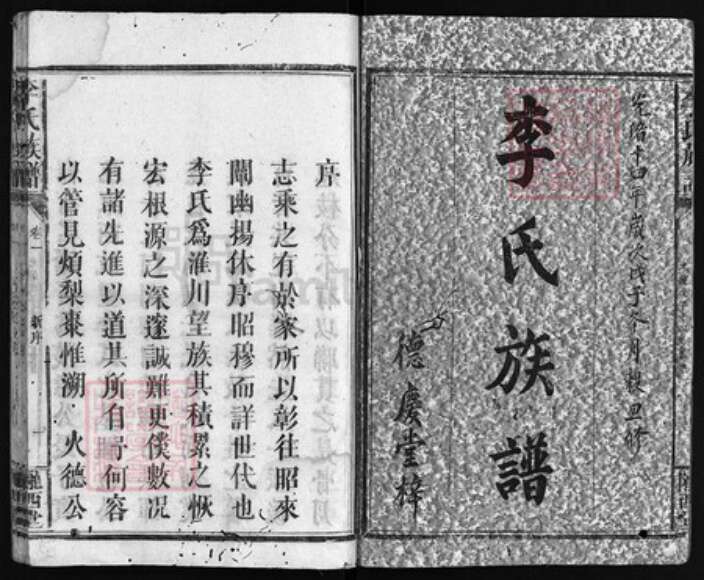 光緒十四年歲次戊子冬月穀旦修
李氏族譜
德慶堂梓
序
志乘之有於家所以彰往昭來
闡幽揚休序昭穆而詳世代也
李氏爲淮川望族其積累之恢
宏根源之深邃誠難更僕數况
有諸先進以道其所自予何容
以管見煩梨棗惟溯 火德公
李氏族譜
卷一
新序
隴西堂